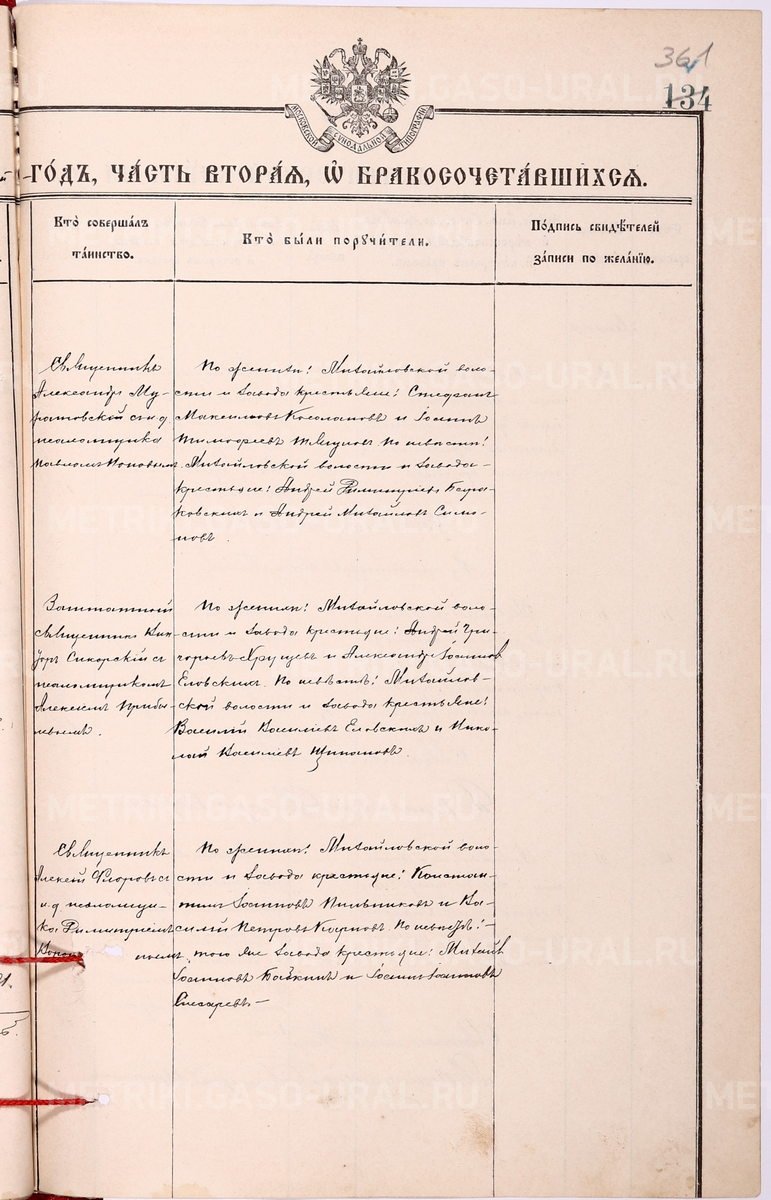 361
134
МОСКОВСКОЙ СѴНОДАЛЬНОЙ ТИПОГРАФІИ
ГО́ДЪ, ЧА́СТЬ ВТОРА́Я, Ѽ БРАКОСОЧЕТА́ВШИХСЯ.
Кто̀ соверша́лъ
та́инство.
Кто̀ бы́ли порꙋчи́тели.
По́дпись свидѣ́телей
за́писи по жела́нїю.
Священникъ
Александръ Му-
ратовской съ и.д.
псаломщика
Павломъ Поповымъ.
По женихѣ: Михайловской воло-
сти и завода крестьяне: Стефанъ
Максимовъ и Іоаннъ
Тимофеевъ По невѣстѣ:
Михайловской волости и завода
крестьяне: Андрей Димитріевъ
и Андрей Михайловъ Симо-
новъ.
Заштатный
священникъ Вик-
торъ Сикорскій съ
псаломщикомъ
Алексіемъ Прибы-
левымъ.
По женихѣ: Михайловской воло-
сти и завода крестьяне: Андрей Гри-
горьевъ Хрущевъ и Александръ Іоанновъ
Еловскихъ. По невѣстѣ: Михайлов-
ской волости и завода крестьяне:
Василій Василіевъ Еловскихъ и Нико-
лай Василіевъ Щипановъ.
Священникъ
Алексій Флоровъ съ
и.д. псаломщи-
ка Димитріемъ
По женихѣ: Михайловской воло-
сти и завода крестьяне: Констан-
тинъ Іоанновъ Пильниковъ и Ва-
силій Петровъ По невѣстѣ:
того же завода крестьяне: Михаилъ
Іоанновъ и Іоаннъ Іоанновъ
Слесаревъ.
METRIKI.GASO-URAL.RU